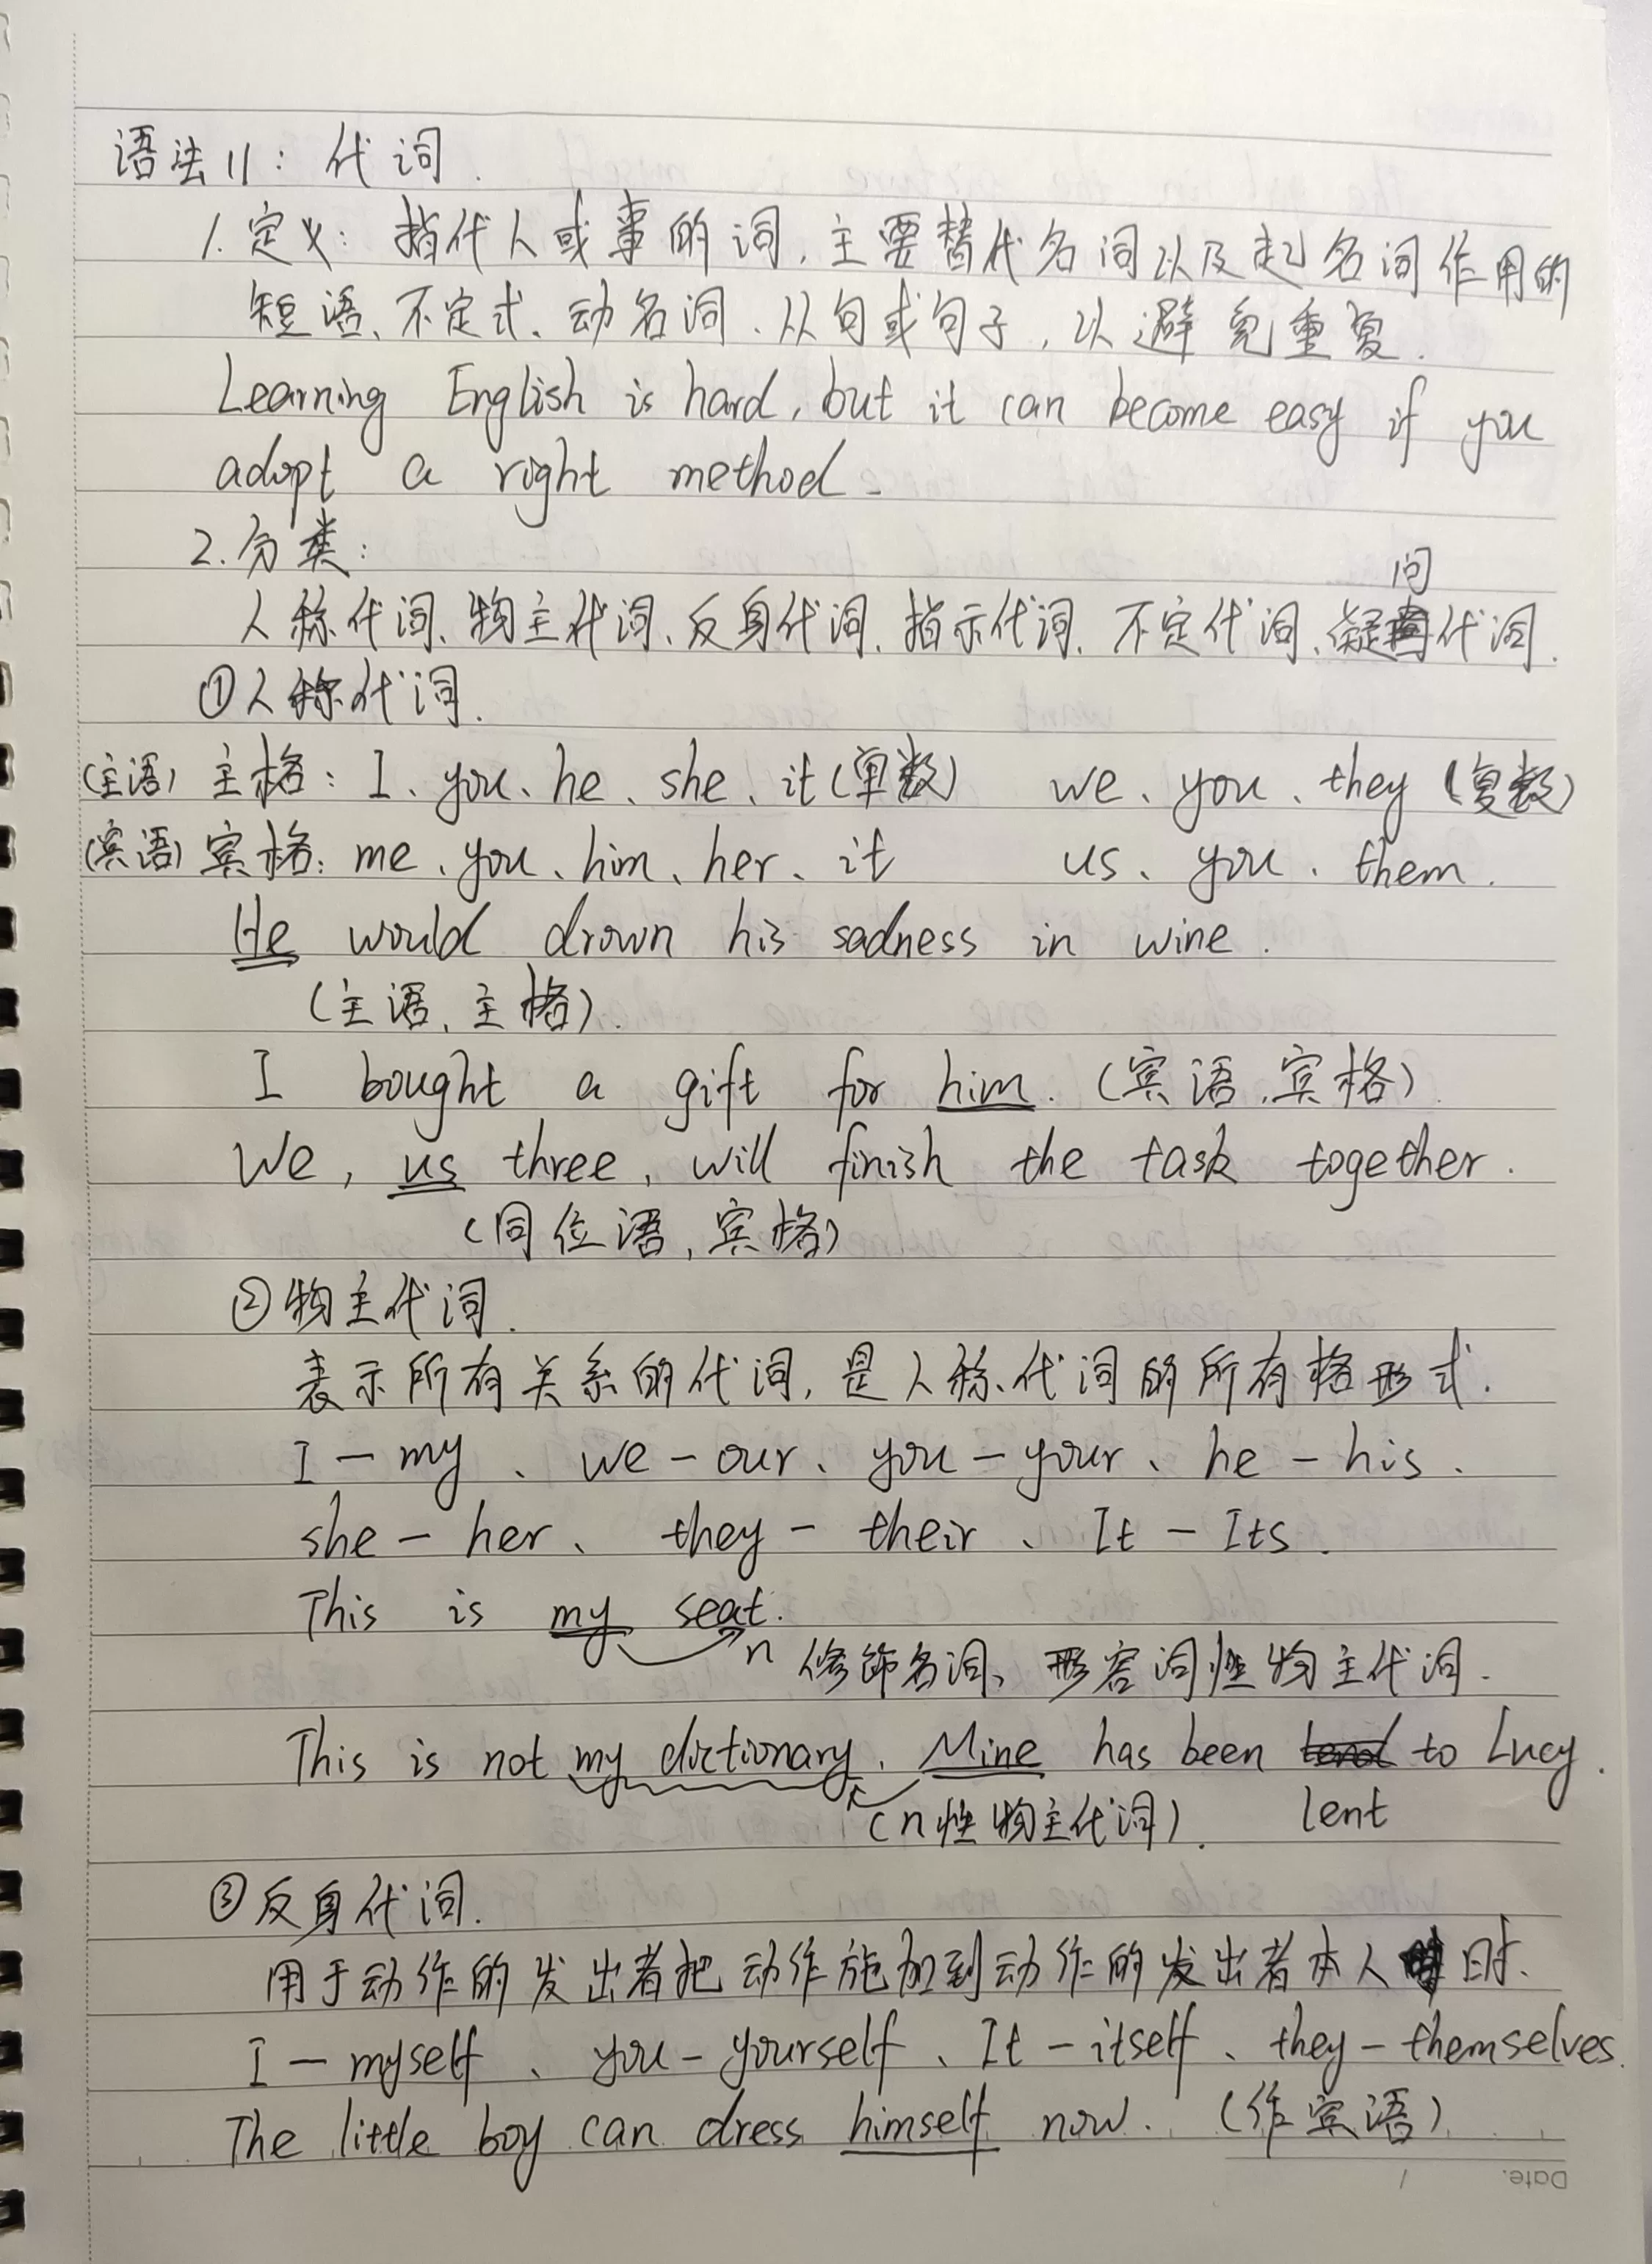 语法11：代词.
1. 定义：指代人或事的词，主要替代名词以及起名词作用的
短语、不定式、动名词、从句或句子，以避免重复.
Learning English is hard, but it can become easy if you
adopt a right method.
2. 分类：
问
人称代词、物主代词、反身代词、指示代词、不定代词、凝代词.
①人称代词.
(主语) 主格：I、you、he、she、it(单数) we、you、they (复数)
(宾语) 宾格：me、you、him、her、it us、you、them.
He would drown his sadness in wine.
(主语、主格).
I bought a gift for him. (宾语、宾格).
We, us three, will finish the task together.
(同位语，宾格)
②物主代词.
表示所有关系的代词，是人称代词的所有格形式.
I - my、we - our、you - your、he - his.
she - her、they - their、It - Its.
This is my seat.
n 修饰名词、形容词性物主代词.
This is not my dictionary. Mine has been to Lucy.
(n性物主代词). lent
③反身代词.
用于动作的发出者把动作施加到动作的发出者本人时.
I - myself、you - yourself、It - itself、they - themselves.
The little boy can dress himself now. (作宾语)
Date. /